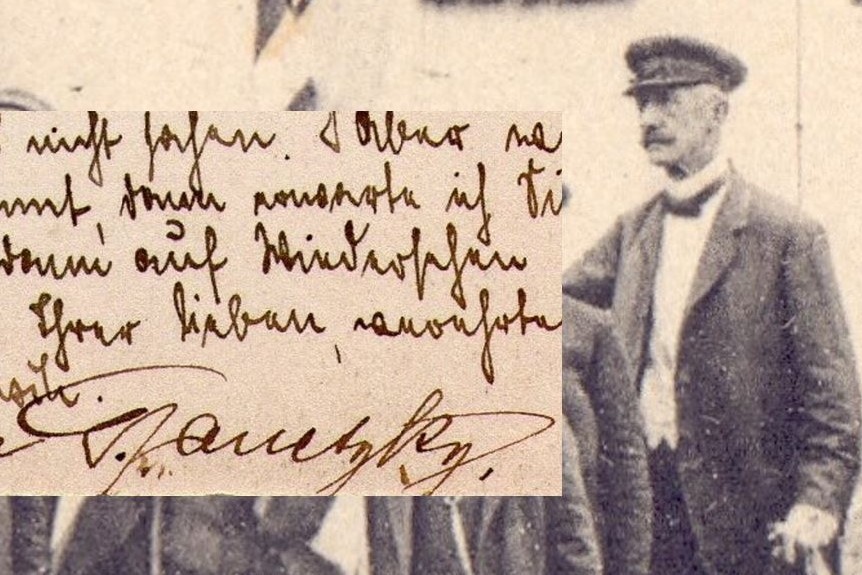 nicht sehen. Aber w
mmt, dann erwarte ich Si
dann auf Wiedersehen
Ihrer lieben, verehrte
Janetzky.